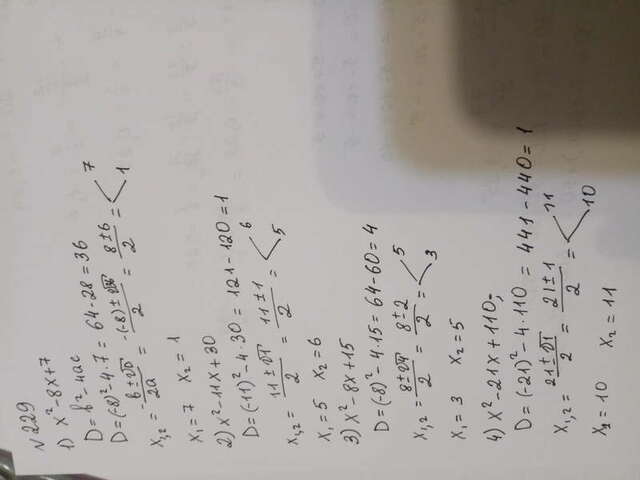 N 229
1) x² - 8x + 7
D = b² - 4ac
D = (-8)² - 4·7 = 64 - 28 = 36
x₁,₂ = (-b ± √D)/2a = (-(-8) ± √36)/2 = (8 ± 6)/2 = < 7 1
x₁ = 7 x₂ = 1
2) x² - 11x + 30
D = (-11)² - 4·30 = 121 - 120 = 1
x₁,₂ = (11 ± √1)/2 = (11 ± 1)/2 = < 6 5
x₁ = 5 x₂ = 6
3) x² - 8x + 15
D = (-8)² - 4·15 = 64 - 60 = 4
x₁,₂ = (8 ± √4)/2 = (8 ± 2)/2 = < 5 3
x₁ = 3 x₂ = 5
4) x² - 21x + 110;
D = (-21)² - 4·110 = 441 - 440 = 1
x₁,₂ = (21 ± √1)/2 = (21 ± 1)/2 = < 11 10
x₁ = 10 x₂ = 11